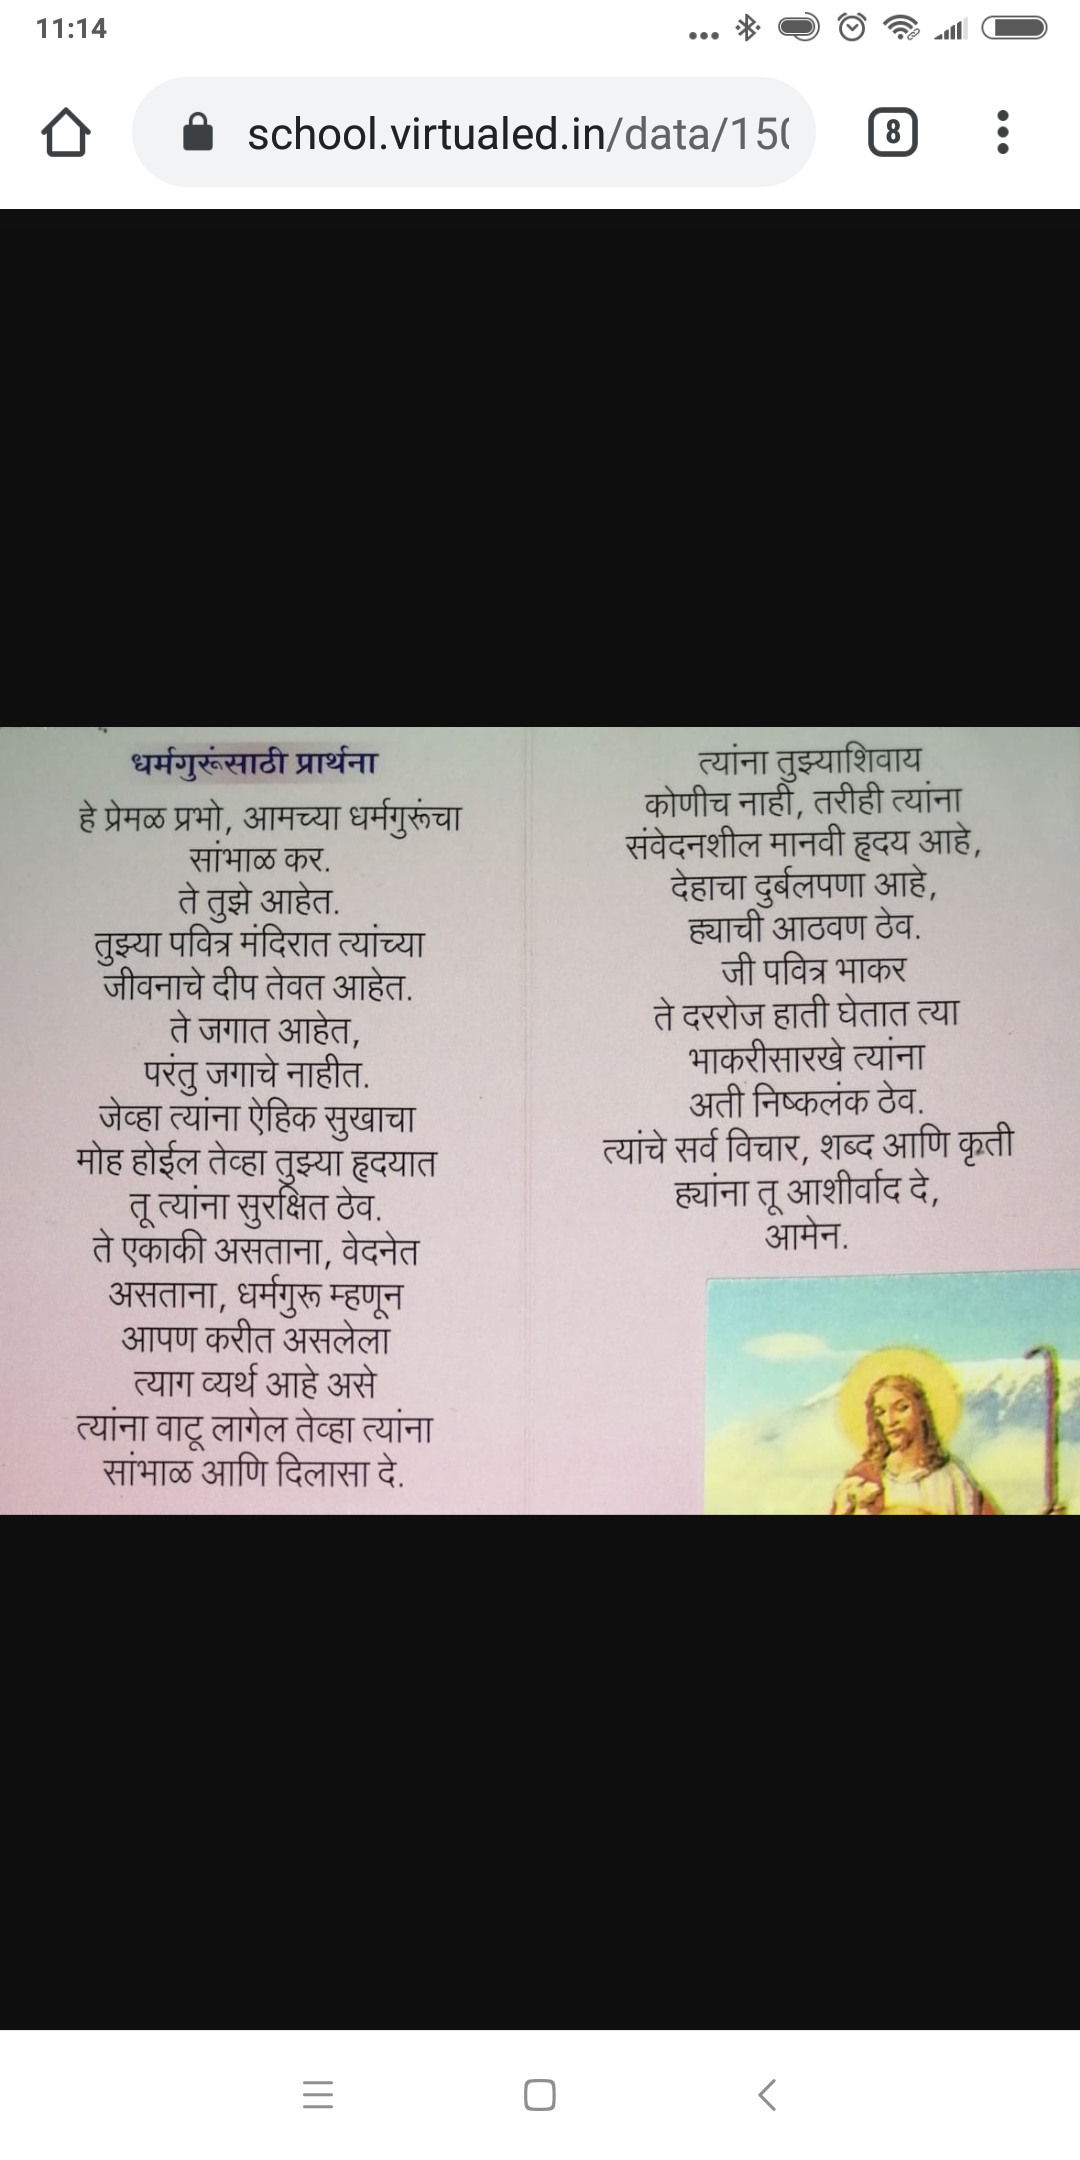 11:14
school.virtualed.in/data/150
8
धर्मगुरूंसाठी प्रार्थना
हे प्रेमळ प्रभो, आमच्या धर्मगुरूंचा
सांभाळ कर.
ते तुझे आहेत.
तुझ्या पवित्र मंदिरात त्यांच्या
जीवनाचे दीप तेवत आहेत.
ते जगात आहेत,
परंतु जगाचे नाहीत.
जेव्हा त्यांना ऐहिक सुखाचा
मोह होईल तेव्हा तुझ्या हृदयात
तू त्यांना सुरक्षित ठेव.
ते एकाकी असताना, वेदनेत
असताना, धर्मगुरू म्हणून
आपण करीत असलेला
त्याग व्यर्थ आहे असे
त्यांना वाटू लागेल तेव्हा त्यांना
सांभाळ आणि दिलासा दे.
त्यांना तुझ्याशिवाय
कोणीच नाही, तरीही त्यांना
संवेदनशील मानवी हृदय आहे,
देहाचा दुर्बलपणा आहे,
ह्याची आठवण ठेव.
जी पवित्र भाकर
ते दररोज हाती घेतात त्या
भाकरीसारखे त्यांना
अती निष्कलंक ठेव.
त्यांचे सर्व विचार, शब्द आणि कृती
ह्यांना तू आशीर्वाद दे,
आमेन.